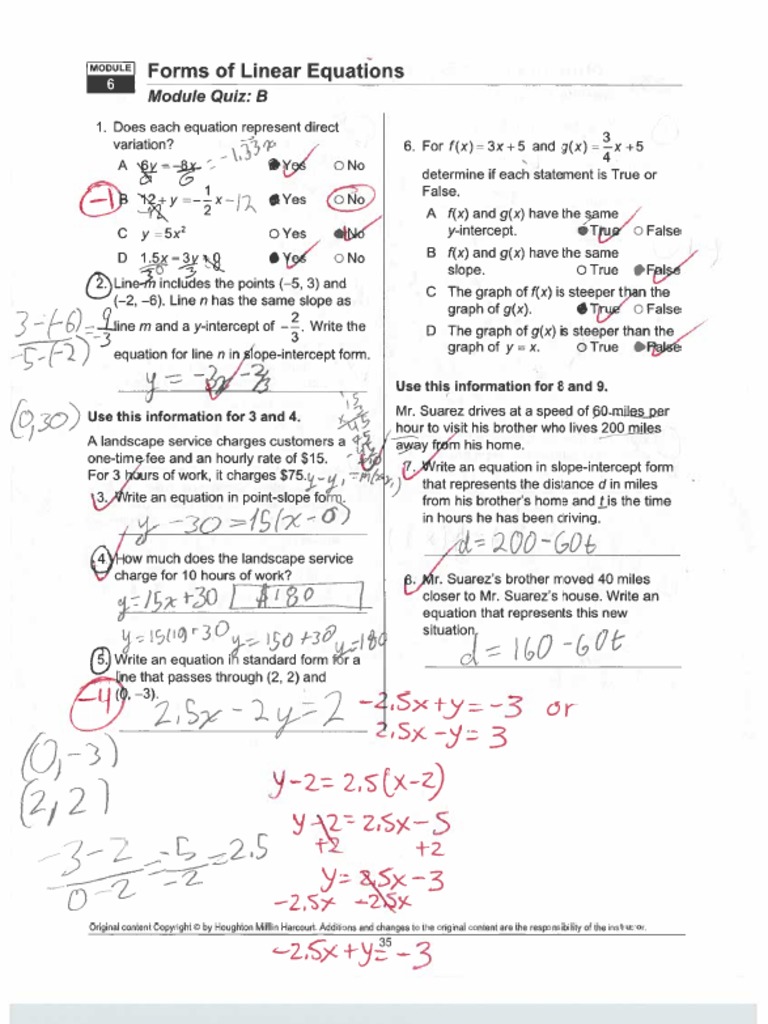 MODULE
6
Forms of Linear Equations
Module Quiz: B
1. Does each equation represent direct
variation?
A 6y = -8x = -1.33x Yes No
6 6
-1 B 12 + y = -1/2 x -12 Yes No
-12
C y = 5x² Yes No
D 1.5x - 3y = 0 Yes No
2. Line m includes the points (-5, 3) and
(-2, -6). Line n has the same slope as
line m and a y-intercept of -2/3. Write the
equation for line n in slope-intercept form.
3-(-6) = 9
-5-(-2) -3
y = -3x - 2/3
(0,30)
Use this information for 3 and 4.
A landscape service charges customers a
one-time fee and an hourly rate of $15.
For 3 hours of work, it charges $75.
15
45
3. Write an equation in point-slope form.
y - 30 = 15(x - 0)
4. How much does the landscape service
charge for 10 hours of work?
y = 15x + 30 $180
y = 150 + 30 y = 180
5. Write an equation in standard form for a
line that passes through (2, 2) and
(0, -3).
-4
2.5x - 2y = 2
(0, -3)
(2, 2)
-3-2 = -5 = 2.5
0-2 -2
6. For f(x) = 3x + 5 and g(x) = 3/4 x + 5
determine if each statement is True or
False.
A f(x) and g(x) have the same
y-intercept. True False
B f(x) and g(x) have the same
slope. True False
C The graph of f(x) is steeper than the
graph of g(x). True False
D The graph of g(x) is steeper than the
graph of y = x. True False
Use this information for 8 and 9.
Mr. Suarez drives at a speed of 60 miles per
hour to visit his brother who lives 200 miles
away from his home.
7. Write an equation in slope-intercept form
that represents the distance d in miles
from his brother's home and t is the time
in hours he has been driving.
d = 200 - 60t
8. Mr. Suarez's brother moved 40 miles
closer to Mr. Suarez's house. Write an
equation that represents this new
situation
d = 160 - 60t
-2.5x + y = -3 or
2.5x - y = 3
y - 2 = 2.5(x - 2)
y - 2 = 2.5x - 5
+2 +2
y = 2.5x - 3
-2.5x -2.5x
Original content Copyright © by Houghton Mifflin Harcourt. Additions and changes to the original content are the responsibility of the instructor.
35
-2.5x + y = -3